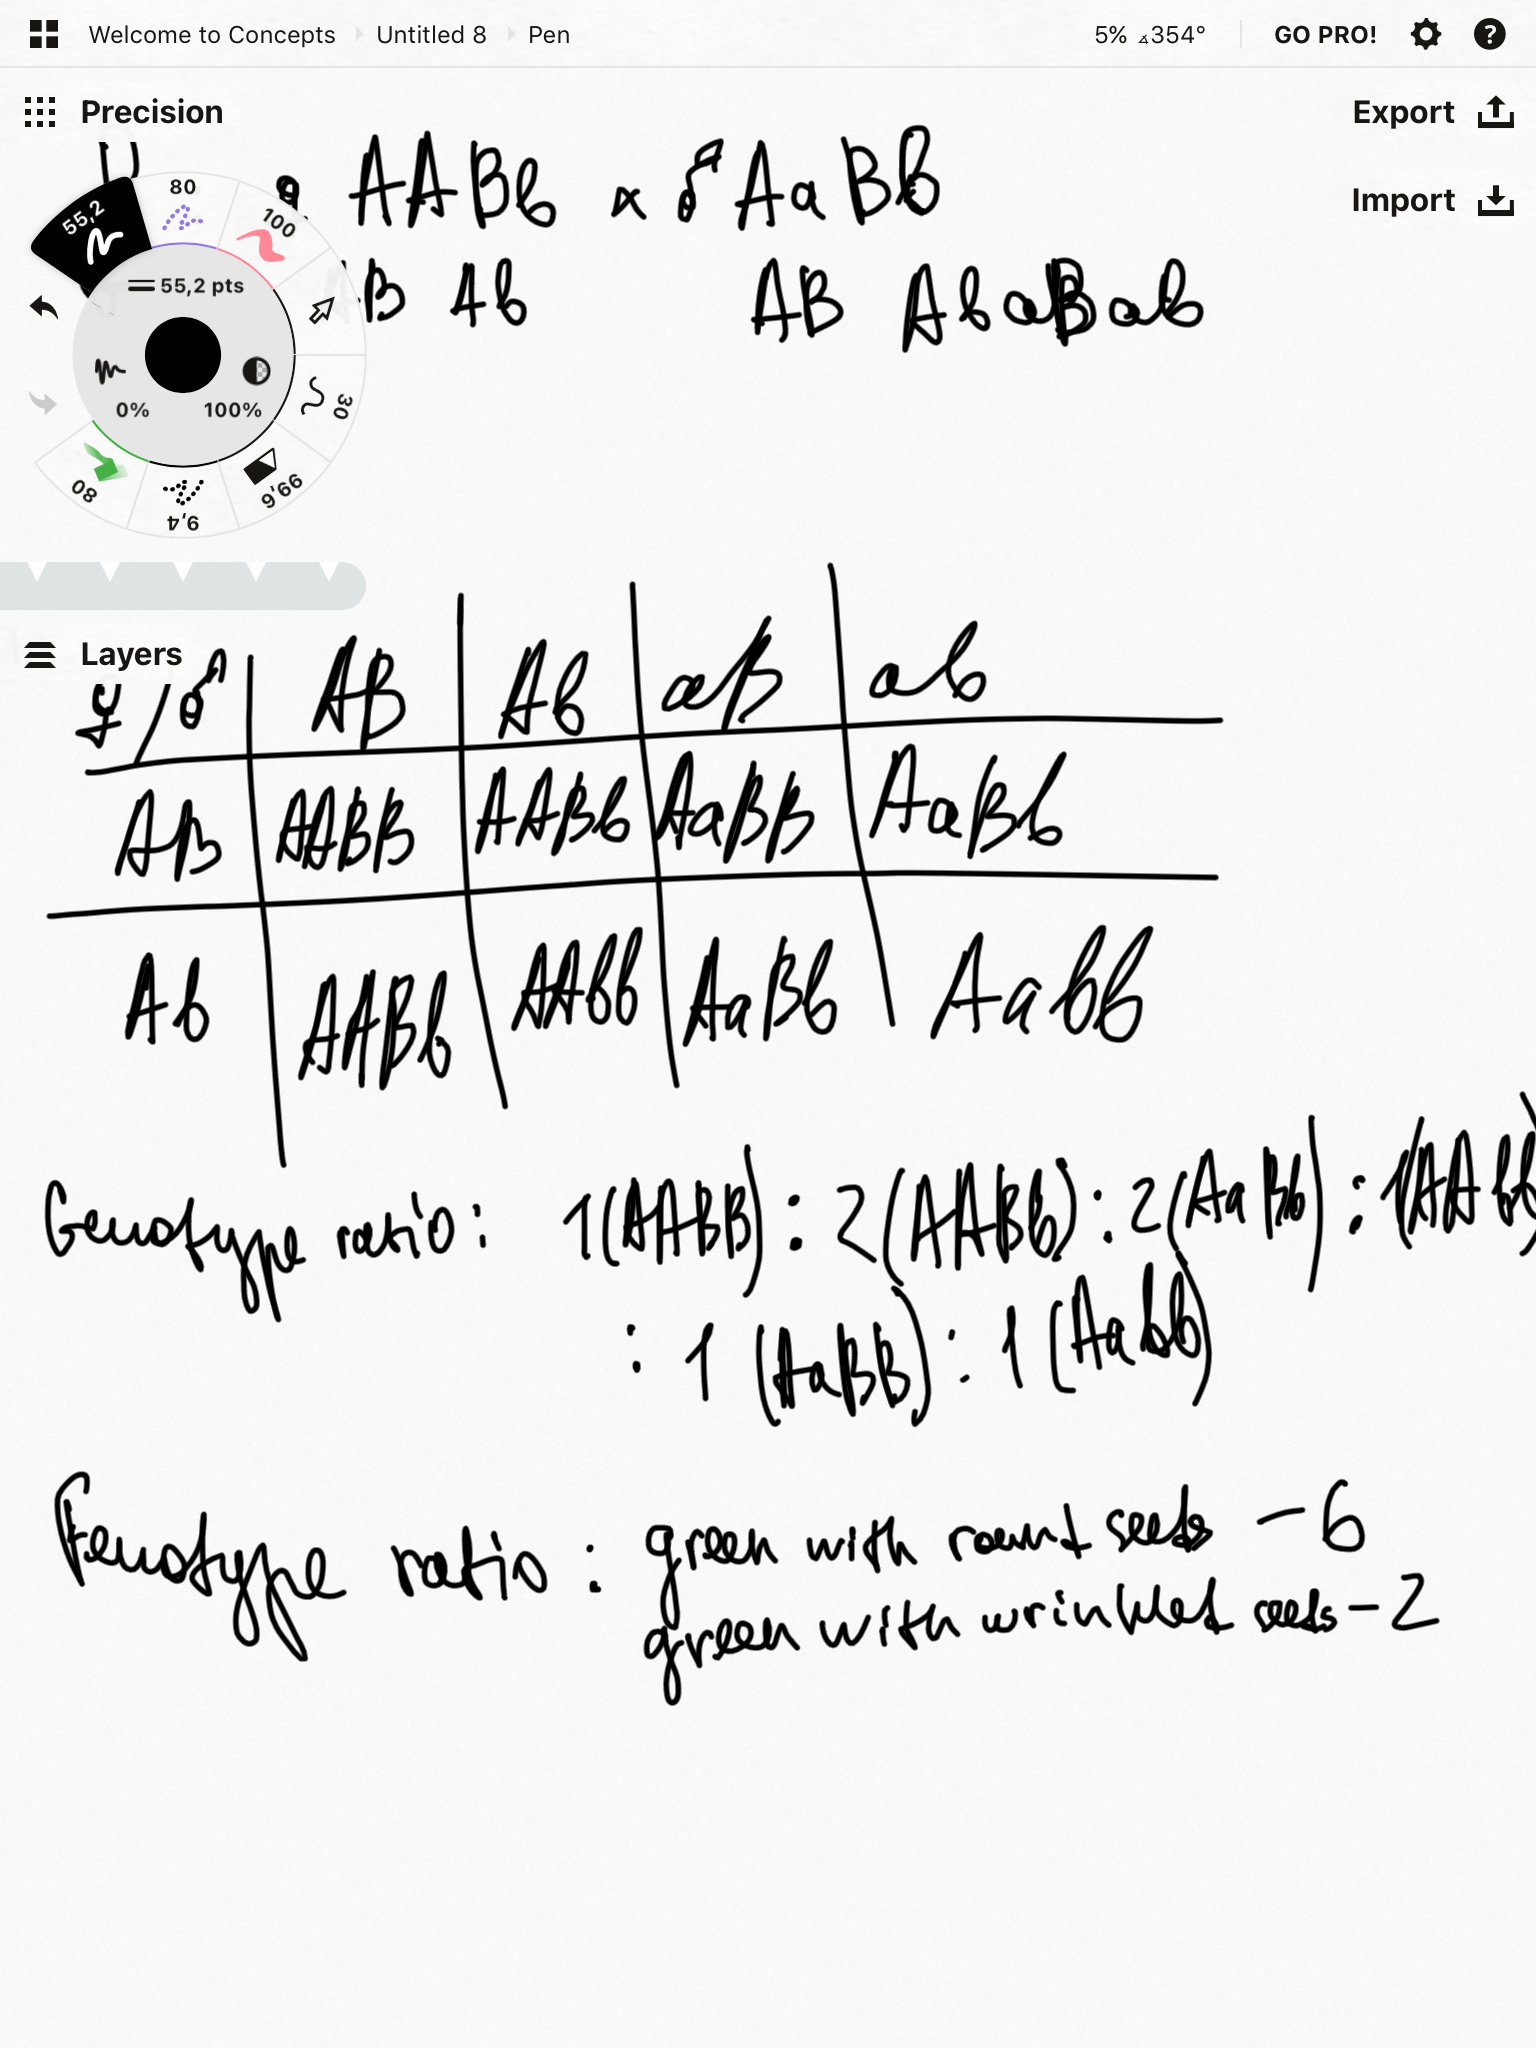 Welcome to Concepts Untitled 8 Pen 5% ∡354° GO PRO! ?
Precision Export
Import
P ♀ AABb x ♂ AaBb
AB Ab AB Ab aB ab
55,2 80 100
55,2 pts
0% 100%
30
99,6
9,4
80
Layers
♀/♂ AB Ab aB ab
AB AABB AABb AaBB AaBb
Ab AABb AAbb AaBb Aabb
Genotype ratio: 1(AABB) : 2(AABb) : 2(AaBb) : 1(AAbb)
: 1 (AaBB) : 1 (Aabb)
Fenotype ratio: green with round seeds - 6
green with wrinkled seeds - 2